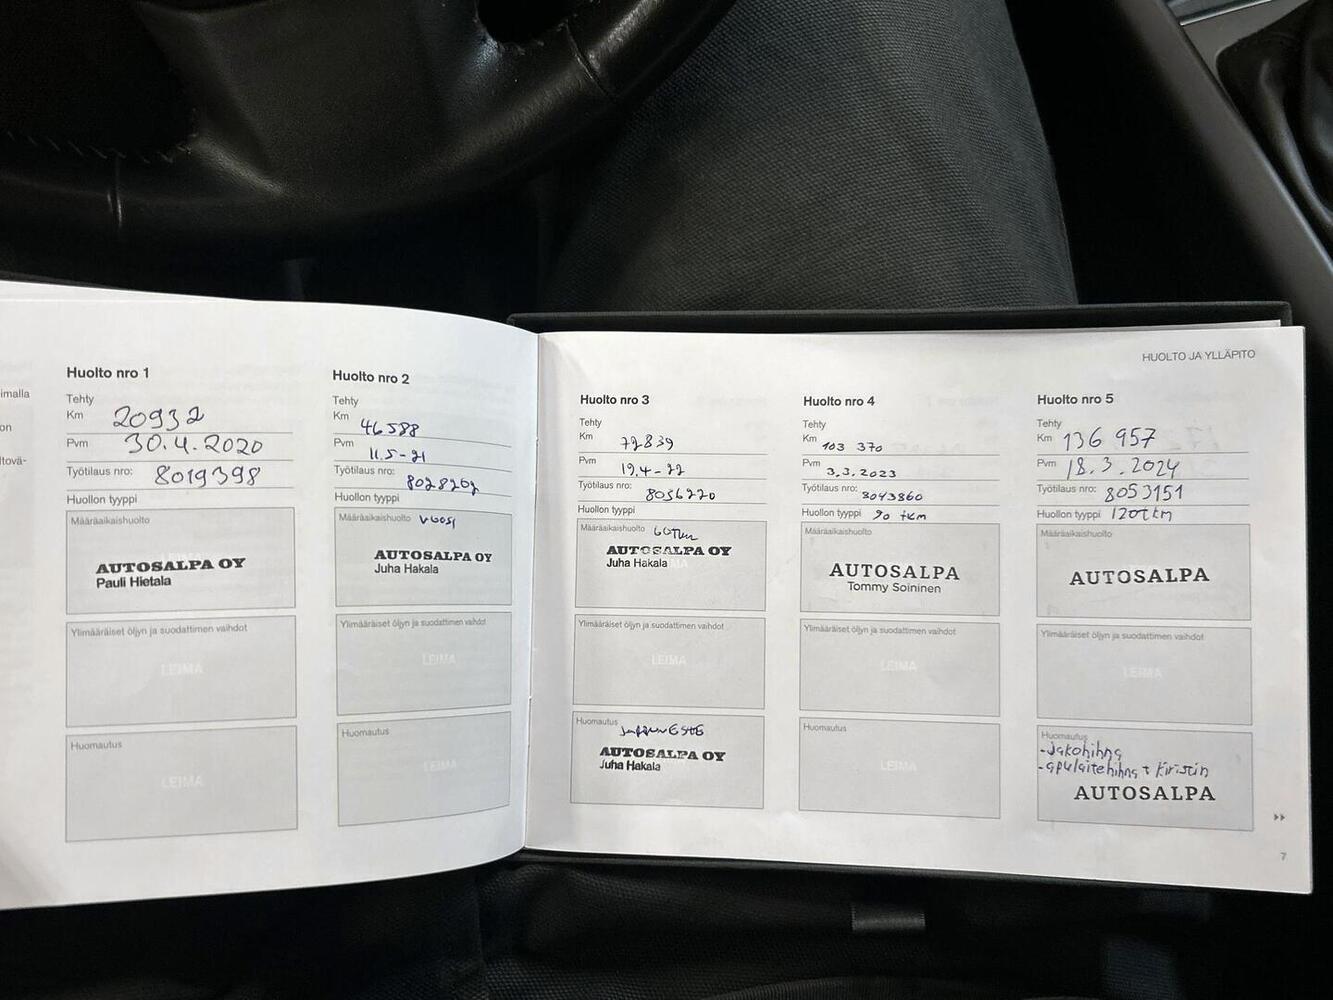 imalla
on
ltovä-
Huolto nro 1
Tehty
Km 20932
Pvm 30.4.2020
Työtilaus nro: 8019398
Huollon tyyppi
Määräaikaishuolto
AUTOSALPA OY
Pauli Hietala
Ylimääräiset öljyn ja suodattimen vaihdot
LEIMA
Huomautus
LEIMA
Huolto nro 2
Tehty
Km 46588
Pvm 11.5-21
Työtilaus nro: 8028262
Huollon tyyppi
Määräaikaishuolto vuosi
AUTOSALPA OY
Juha Hakala
Ylimääräiset öljyn ja suodattimen vaihdot
LEIMA
Huomautus
LEIMA
HUOLTO JA YLLÄPITO
Huolto nro 3
Tehty
Km 77839
Pvm 19.4-22
Työtilaus nro: 8036220
Huollon tyyppi
Määräaikaishuolto 60Tkm
AUTOSALPA OY
Juha Hakala
Ylimääräiset öljyn ja suodattimen vaihdot
LEIMA
Huomautus
AUTOSALPA OY
Juha Hakala
Huolto nro 4
Tehty
Km 103 370
Pvm 3.3.2023
Työtilaus nro: 8043860
Huollon tyyppi 90 tkm
Määräaikaishuolto
AUTOSALPA
Tommy Soininen
Ylimääräiset öljyn ja suodattimen vaihdot
LEIMA
Huomautus
LEIMA
Huolto nro 5
Tehty
Km 136 957
Pvm 18.3.2024
Työtilaus nro: 8053151
Huollon tyyppi 120tkm
Määräaikaishuolto
AUTOSALPA
Ylimääräiset öljyn ja suodattimen vaihdot
LEIMA
Huomautus
-jakohihna
-apulaitehihna + kiristin
AUTOSALPA
7